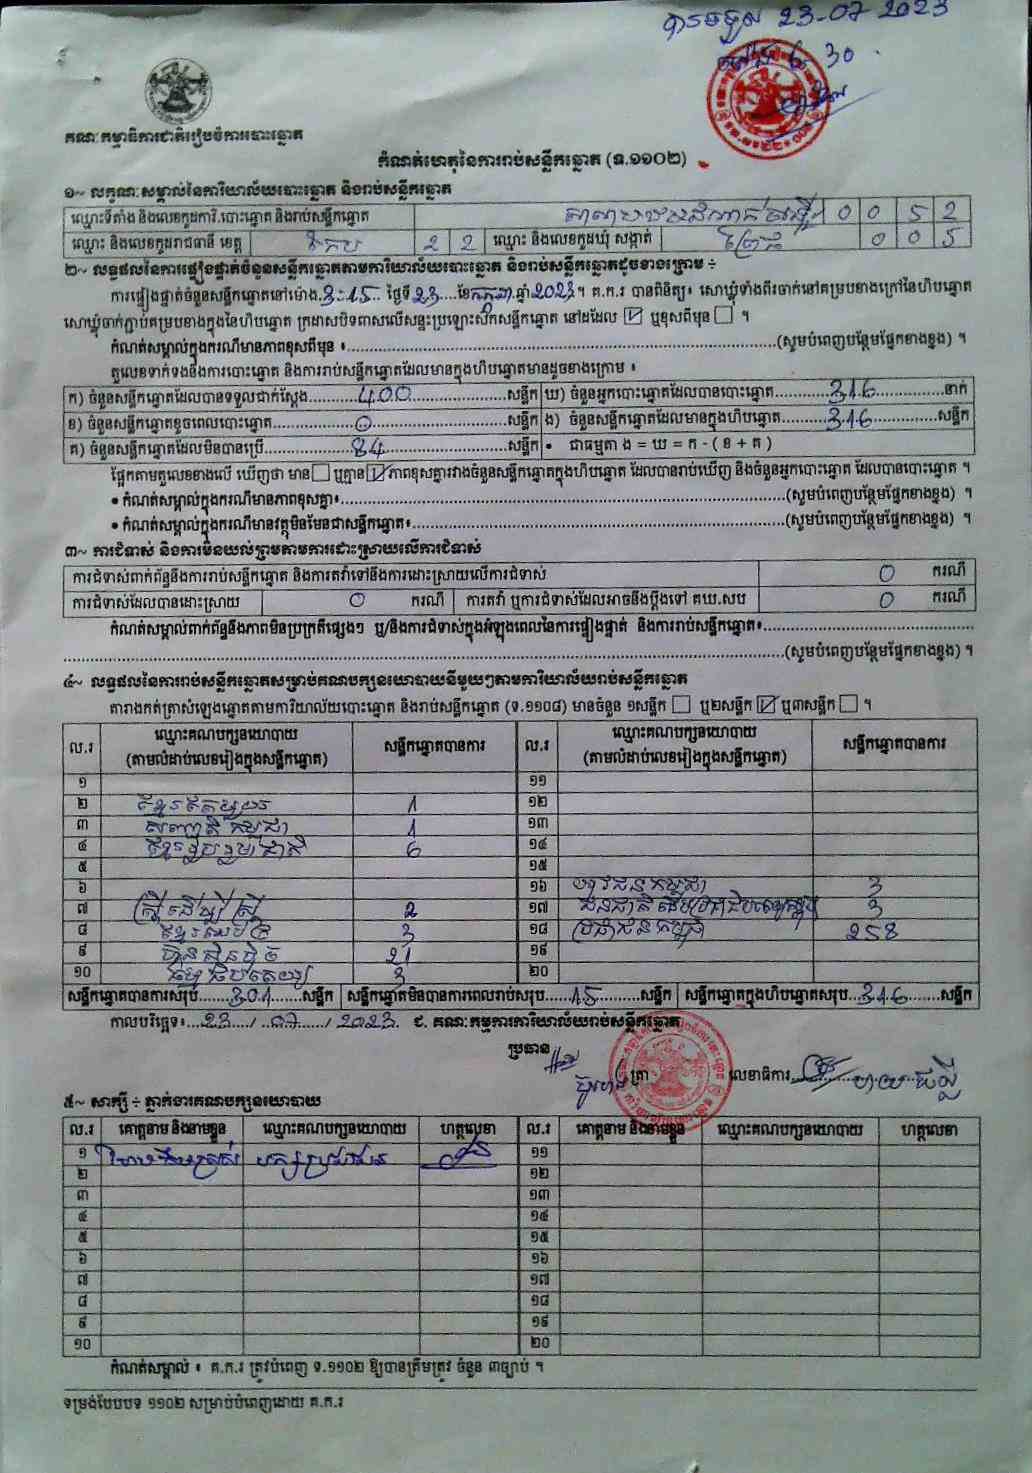 បានទទួល 23-07-2023
ម៉ោង 6 30
គណៈកម្មាធិការជាតិរៀបចំការបោះឆ្នោត
កំណត់ហេតុនៃការរាប់សន្លឹកឆ្នោត (ទ.១១០២)
១~ លក្ខណៈសម្គាល់នៃការិយាល័យបោះឆ្នោត និងរាប់សន្លឹកឆ្នោត
ឈ្មោះទីតាំង និងលេខកូដការិ.បោះឆ្នោត និងរាប់សន្លឹកឆ្នោត 0 0 5 2
ឈ្មោះ និងលេខកូដរាជធានី ខេត្ត កែប 2 2 ឈ្មោះ និងលេខកូដឃុំ សង្កាត់ ព្រៃធំ 0 0 5
២~ លទ្ធផលនៃការផ្ទៀងផ្ទាត់ចំនួនសន្លឹកឆ្នោតតាមការិយាល័យបោះឆ្នោត និងរាប់សន្លឹកឆ្នោតដូចខាងក្រោម ÷
ការផ្ទៀងផ្ទាត់ចំនួនសន្លឹកឆ្នោតនៅម៉ោង 3:15 ថ្ងៃទី 23 ខែ កក្កដា ឆ្នាំ 2023 ។ គ.ក.រ បានពិនិត្យ៖ សោឃ្លុំទាំងពីរចាក់នៅគម្របខាងក្រៅនៃហិបឆ្នោត
សោឃ្លុំចាក់ភ្ជាប់គម្របខាងក្នុងនៃហិបឆ្នោត ក្រដាសបិទពាសលើសន្ទះប្រឡោះស៊កសន្លឹកឆ្នោត នៅដដែល ☑ ឬខុសពីមុន ☐ ។
កំណត់សម្គាល់ក្នុងករណីមានភាពខុសពីមុន ៖ (សូមបំពេញបន្ថែមផ្នែកខាងខ្នង) ។
តួលេខទាក់ទងនឹងការបោះឆ្នោត និងការរាប់សន្លឹកឆ្នោតដែលមានក្នុងហិបឆ្នោតមានដូចខាងក្រោម ៖
ក) ចំនួនសន្លឹកឆ្នោតដែលបានទទួលជាក់ស្ដែង 400 សន្លឹក ឃ) ចំនួនអ្នកបោះឆ្នោតដែលបានបោះឆ្នោត 316 នាក់
ខ) ចំនួនសន្លឹកឆ្នោតខូចពេលបោះឆ្នោត 0 សន្លឹក ង) ចំនួនសន្លឹកឆ្នោតដែលមានក្នុងហិបឆ្នោត 316 សន្លឹក
គ) ចំនួនសន្លឹកឆ្នោតដែលមិនបានប្រើ 84 សន្លឹក • ជាធម្មតា ង = ឃ = ក - ( ខ + គ )
ផ្អែកតាមតួលេខខាងលើ ឃើញថា មាន ☐ ឬគ្មាន ☑ ភាពខុសគ្នារវាងចំនួនសន្លឹកឆ្នោតក្នុងហិបឆ្នោត ដែលបានរាប់ឃើញ និងចំនួនអ្នកបោះឆ្នោត ដែលបានបោះឆ្នោត ។
• កំណត់សម្គាល់ក្នុងករណីមានភាពខុសគ្នា៖ (សូមបំពេញបន្ថែមផ្នែកខាងខ្នង) ។
• កំណត់សម្គាល់ក្នុងករណីមានវត្ថុមិនមែនជាសន្លឹកឆ្នោត៖ (សូមបំពេញបន្ថែមផ្នែកខាងខ្នង) ។
៣~ ការជំទាស់ និងការមិនយល់ព្រមតាមការដោះស្រាយលើការជំទាស់
ការជំទាស់ពាក់ព័ន្ធនឹងការរាប់សន្លឹកឆ្នោត និងការតវ៉ាទៅនឹងការដោះស្រាយលើការជំទាស់ 0 ករណី
ការជំទាស់ដែលបានដោះស្រាយ 0 ករណី ការតវ៉ា ឬការជំទាស់ដែលអាចនឹងប្ដឹងទៅ គឃ.សប 0 ករណី
កំណត់សម្គាល់ពាក់ព័ន្ធនឹងភាពមិនប្រក្រតីផ្សេងៗ ឬ/និងការជំទាស់ក្នុងអំឡុងពេលនៃការផ្ទៀងផ្ទាត់ និងការរាប់សន្លឹកឆ្នោត៖
(សូមបំពេញបន្ថែមផ្នែកខាងខ្នង) ។
៤~ លទ្ធផលនៃការរាប់សន្លឹកឆ្នោតសម្រាប់គណបក្សនយោបាយនីមួយៗតាមការិយាល័យរាប់សន្លឹកឆ្នោត
តារាងកត់ត្រាសំឡេងឆ្នោតតាមការិយាល័យបោះឆ្នោត និងរាប់សន្លឹកឆ្នោត (ទ.១១០៨) មានចំនួន ១សន្លឹក ☐ ឬ២សន្លឹក ☑ ឬ៣សន្លឹក ☐ ។
ល.រ ឈ្មោះគណបក្សនយោបាយ (តាមលំដាប់លេខរៀងក្នុងសន្លឹកឆ្នោត) សន្លឹកឆ្នោតបានការ ល.រ ឈ្មោះគណបក្សនយោបាយ (តាមលំដាប់លេខរៀងក្នុងសន្លឹកឆ្នោត) សន្លឹកឆ្នោតបានការ
១ ១១
២ ខ្មែរឥស្សរៈ 1 ១២
៣ សញ្ជាតិកម្ពុជា 1 ១៣
៤ ខ្មែររួបរួមជាតិ 6 ១៤
៥ ១៥
៦ ១៦ យុវជនកម្ពុជា 3
៧ ស្ត្រីដើម្បីស្ត្រី 2 ១៧ 3
៨ 3 ១៨ ប្រជាជនកម្ពុជា 258
៩ ហ៊្វុនស៊ិនប៉ិច 21 ១៩
១០ ធម្មាធិបតេយ្យ 3 ២០
សន្លឹកឆ្នោតបានការសរុប 301 សន្លឹក សន្លឹកឆ្នោតមិនបានការពេលរាប់សរុប 15 សន្លឹក សន្លឹកឆ្នោតក្នុងហិបឆ្នោតសរុប 316 សន្លឹក
កាលបរិច្ឆេទ៖ 23 / 07 / 2023 ជ. គណៈកម្មការការិយាល័យរាប់សន្លឹកឆ្នោត
ប្រធាន
ត្រា លេខាធិការ
៥~ សាក្សី ÷ ភ្នាក់ងារគណបក្សនយោបាយ
ល.រ គោត្តនាម និងនាមខ្លួន ឈ្មោះគណបក្សនយោបាយ ហត្ថលេខា ល.រ គោត្តនាម និងនាមខ្លួន ឈ្មោះគណបក្សនយោបាយ ហត្ថលេខា
១ បក្សប្រជាជន ១១
២ ១២
៣ ១៣
៤ ១៤
៥ ១៥
៦ ១៦
៧ ១៧
៨ ១៨
៩ ១៩
១០ ២០
កំណត់សម្គាល់ ៖ គ.ក.រ ត្រូវបំពេញ ទ.១១០២ ឱ្យបានត្រឹមត្រូវ ចំនួន ៣ច្បាប់ ។
ទម្រង់បែបបទ ១១០២ សម្រាប់បំពេញដោយ គ.ក.រ